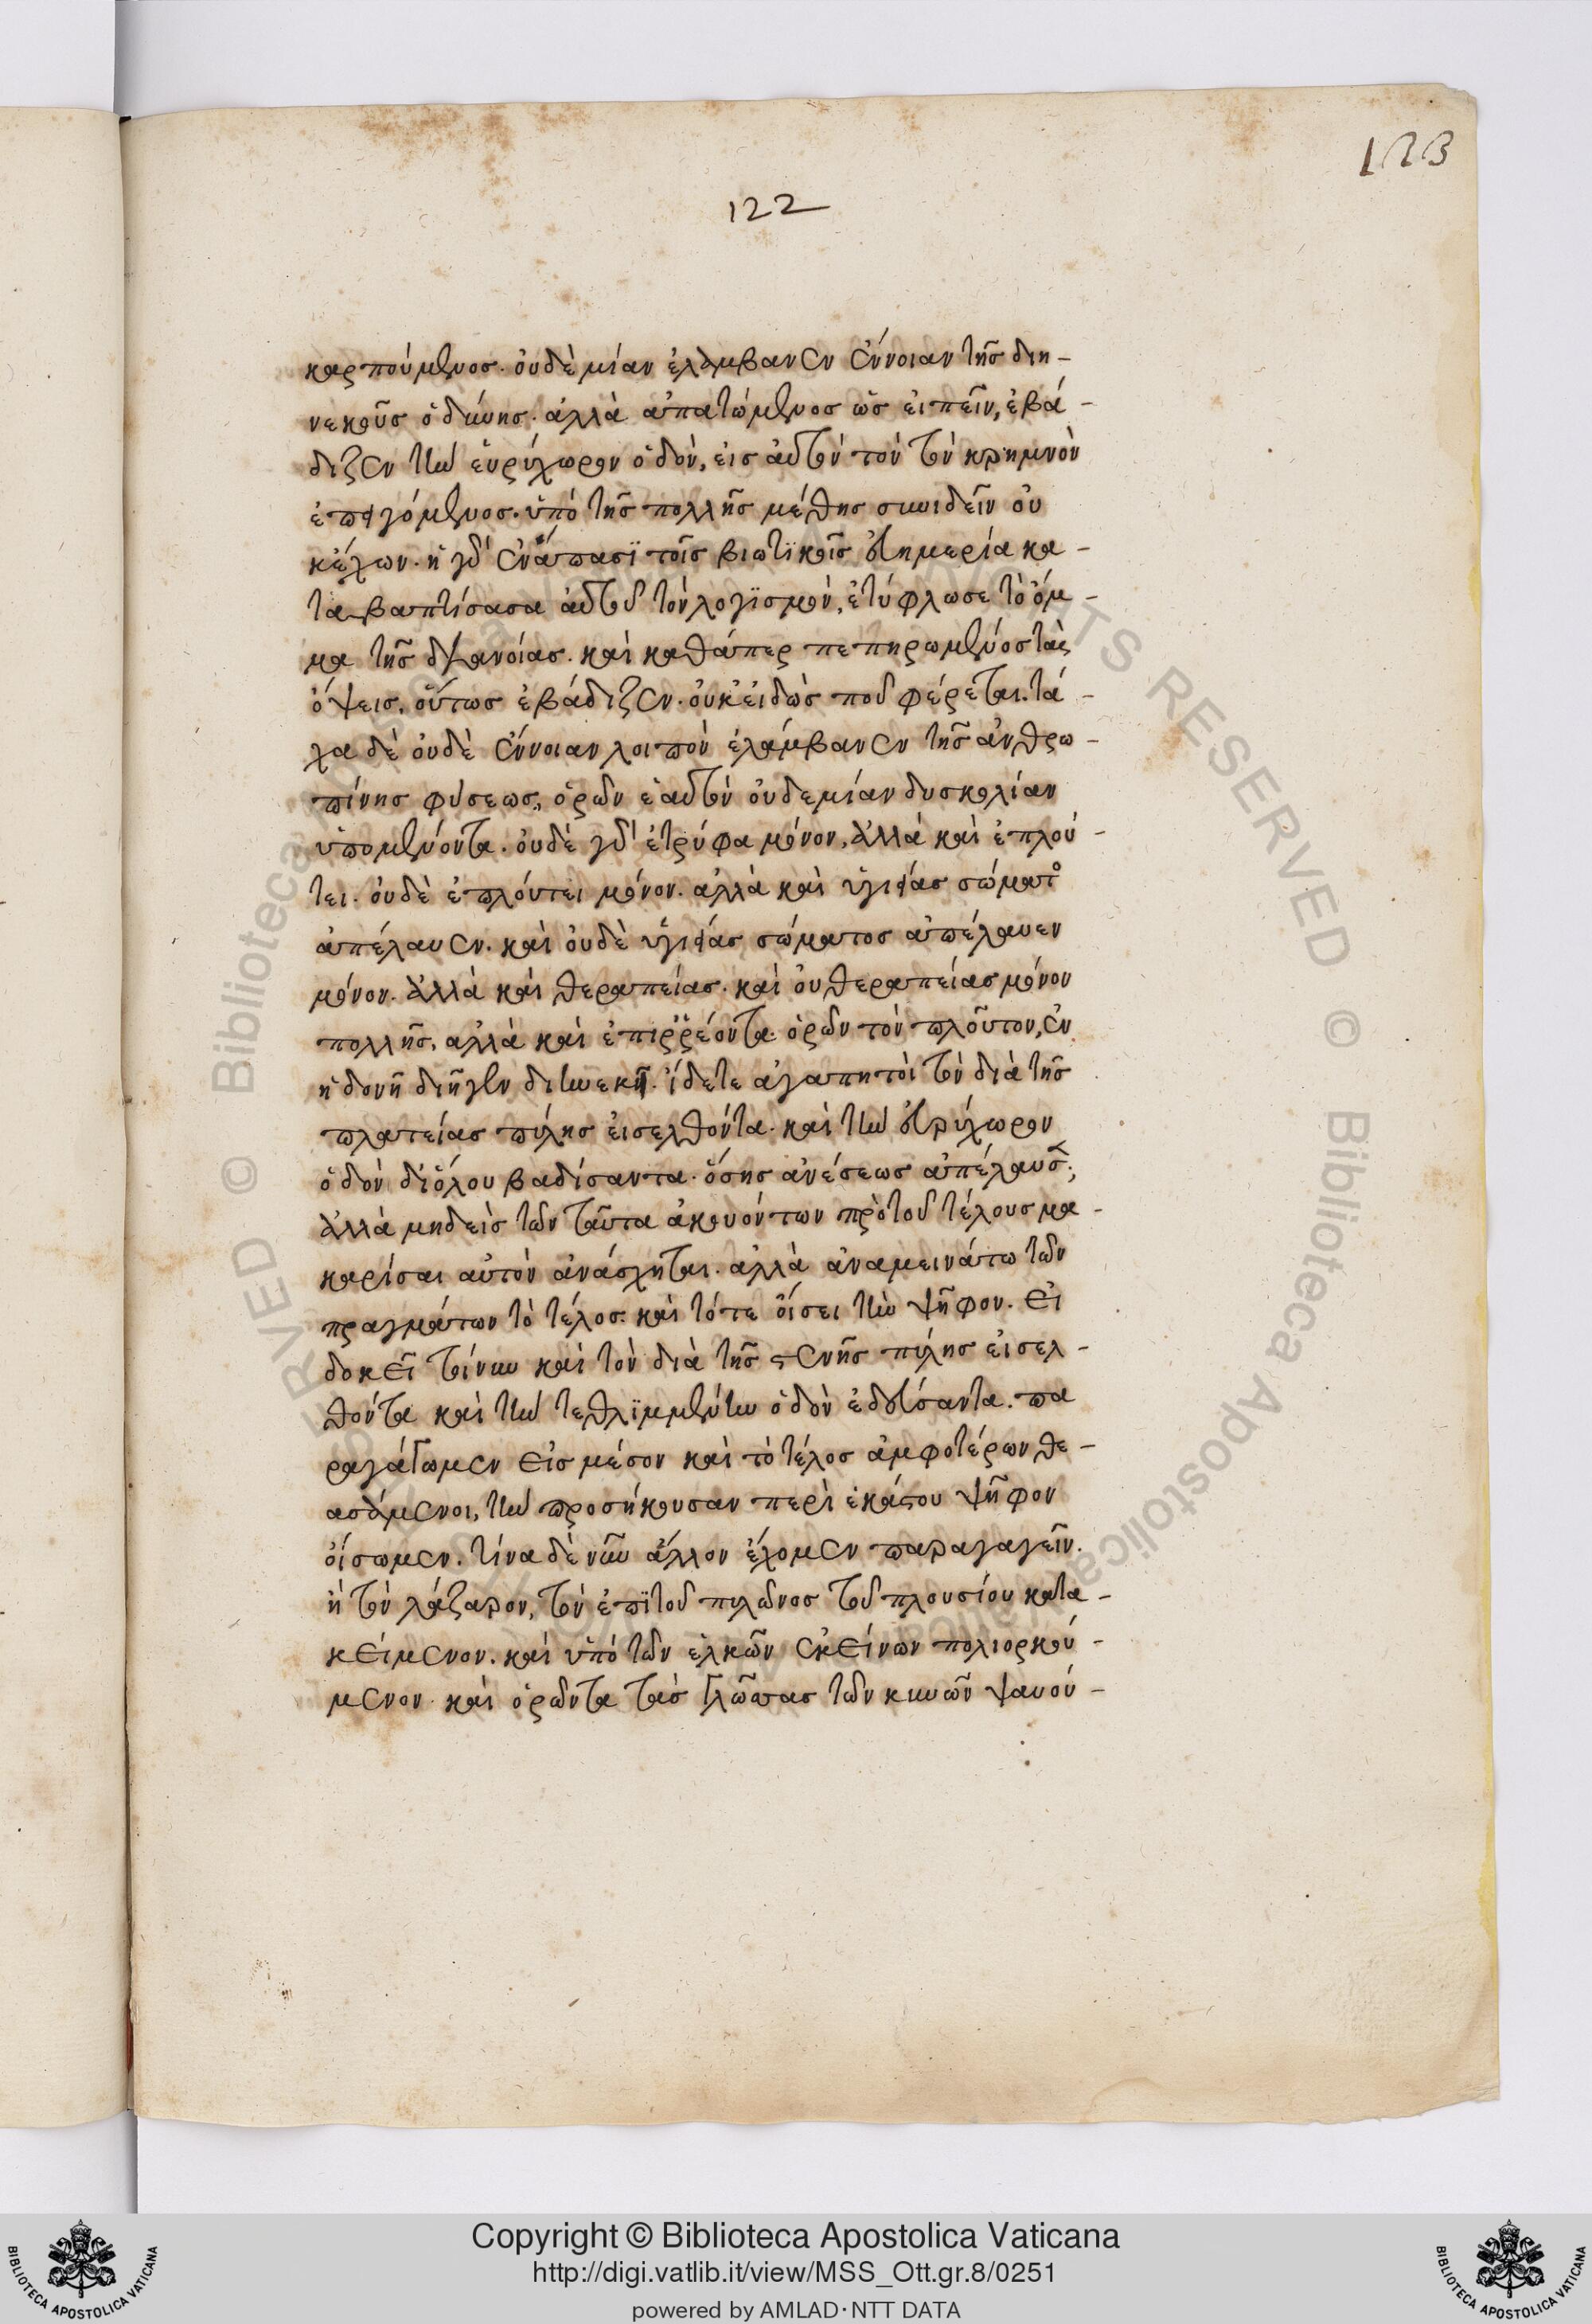 123
122
καρπούμενος. οὐδὲ μίαν ἐλάμβανεν ἔννοιαν τῆς διη-
νεκοῦς ὀδύνης. ἀλλὰ ἀπατώμενος ὡς εἰπεῖν, ἐβά-
διζεν τὴν εὐρύχωρον ὁδόν, εἰς αὐτὸν τὸν τὸν κρημνὸν
ἐπειγόμενος. ὑπὸ τῆς πολλῆς μέθης συνιδεῖν οὐ
κἔχων. ἡ γὰρ ἐν ἅπασϊ τοῖς βιωτϊκοῖς εὐημερία κα-
ταβαπτίσασα αὐτοῦ τὸν λογϊσμόν, ἐτύφλωσε τὸ ὄμ-
μα τῆς διανοίας. καὶ καθάπερ πεπηρωμένος τὰς
ὄψεις, οὕτως ἐβάδιζεν. οὐκ εἰδὼς ποῦ φέρεται. τά-
χα δὲ οὐδὲ ἔννοιαν λοιπὸν ἐλάμβανεν τῆς ἀνθρω-
πίνης φύσεως, ὁρῶν ἑαυτὸν οὐδεμίαν δυσκολίαν
ὑπομένοντα. οὐδὲ γὰρ ἐτρύφα μόνον, ἀλλὰ καὶ ἐπλού-
τει. οὐδὲ ἐπλούτει μόνον. ἀλλὰ καὶ ὑγιείας σώματος
ἀπέλαυεν. καὶ οὐδὲ ὑγιείας σώματος ἀπέλαυεν
μόνον. ἀλλὰ καὶ θεραπείας. καὶ οὐ θεραπείας μόνον
πολλῆς, ἀλλὰ καὶ ἐπιῤῥέοντα ὁρῶν τὸν πλοῦτον, ἐν
ἡδονῇ διῆγεν διηνεκῆ. ἴδετε ἀγαπητοὶ τὸν διὰ τῆς
πλατείας πύλης εἰσελθόντα. καὶ τὴν εὐρύχωρον
ὁδὸν διόλου βαδίσαντα. ὅσης ἀνέσεως ἀπέλαυσε;
ἀλλὰ μηδεὶς τῶν ταῦτα ἀκουόντων πρὸ τοῦ τέλους μα-
καρίσαι αὐτὸν ἀνάσχηται. ἀλλὰ ἀναμεινάτω τῶν
πραγμάτων τὸ τέλος. καὶ τότε οἴσει τὴν ψῆφον. Εἰ
δοκεῖ τοίνυν καὶ τὸν διὰ τῆς στενῆς πύλης εἰσελ-
θόντα καὶ τὴν τεθλϊμμένην ὁδὸν ὁδεύσαντα. πα
ραγάγωμεν εἰς μέσον καὶ τὸ τέλος ἀμφοτέρων θε-
ασάμενοι, τὴν προσήκουσαν περὶ ἑκάστου ψῆφον
οἴσωμεν. τίνα δὲ νῦν ἄλλον ἔχομεν παραγαγεῖν.
ἢ τὸν λάζαρον, τὸν ἐπϊ τοῦ πυλῶνος τοῦ πλουσίου κατα-
κείμενον. καὶ ὑπὸ τῶν ἑλκῶν ἐκείνων πολιορκού-
μενον καὶ ὁρῶντα τὰς γλώττας τῶν κυνῶν ψαυού-
Copyright © Biblioteca Apostolica Vaticana
http://digi.vatlib.it/view/MSS_Ott.gr.8/0251
powered by AMLAD·NTT DATA
BIBLIOTECA APOSTOLICA VATICANA
BIBLIOTECA APOSTOLICA VATICANA